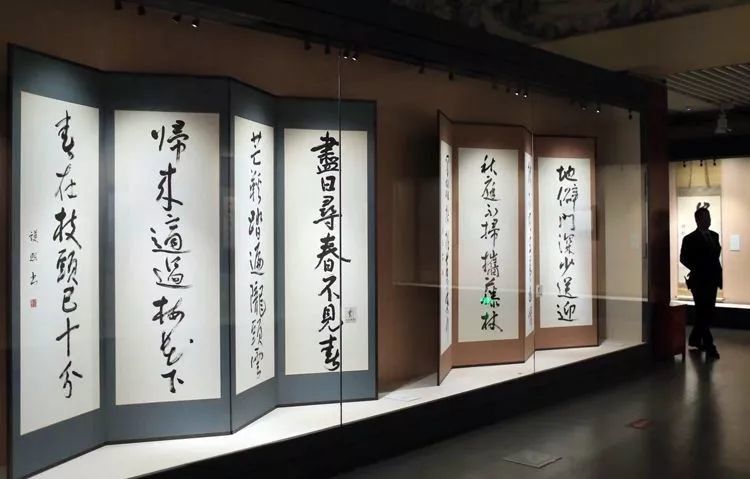 盡日尋春不見春
芒鞋踏遍隴頭雲
歸來適過梅花下
春在枝頭已十分
地僻門深少送迎
秋庭不掃攜藤杖